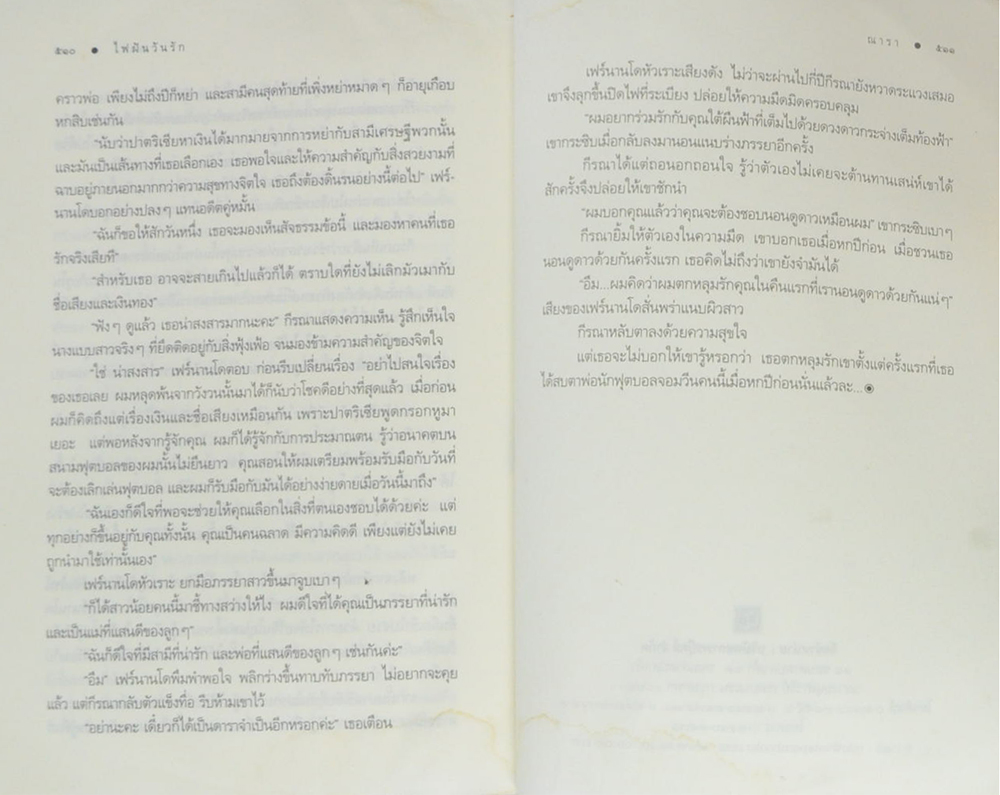 ๕๑๐ ● ไฟฝันวันรัก
คราวพ่อ เพียงไม่ถึงปีก็หย่า และสามีคนสุดท้ายที่เพิ่งหย่าหมาดๆ ก็อายุเกือบ
หกสิบเช่นกัน
“นับว่าปาตริเซียหาเงินได้มากมายจากการหย่ากับสามีเศรษฐีพวกนั้น
และมันเป็นเส้นทางที่เธอเลือกเอง เธอพอใจและให้ความสำคัญกับสิ่งสวยงามที่
ฉาบอยู่ภายนอกมากกว่าความสุขทางจิตใจ เธอถึงต้องดิ้นรนอย่างนี้ต่อไป” เฟร์-
นานโดบอกอย่างปลงๆ แทนอดีตคู่หมั้น
“ฉันก็ขอให้สักวันหนึ่ง เธอจะมองเห็นสัจธรรมข้อนี้ และมองหาคนที่เธอ
รักจริงเสียที”
“สำหรับเธอ อาจจะสายเกินไปแล้วก็ได้ ตราบใดที่ยังไม่เลิกมัวเมากับ
ชื่อเสียงและเงินทอง”
“ฟังๆ ดูแล้ว เธอน่าสงสารมากนะคะ” กีรณาแสดงความเห็น รู้สึกเห็นใจ
นางแบบสาวจริงๆ ที่ยึดติดอยู่กับสิ่งฟุ้งเฟ้อ จนมองข้ามความสำคัญของจิตใจ
“ใช่ น่าสงสาร” เฟร์นานโดตอบ ก่อนรีบเปลี่ยนเรื่อง “อย่าไปสนใจเรื่อง
ของเธอเลย ผมหลุดพ้นจากวังวนนั้นมาได้ก็นับว่าโชคดีอย่างที่สุดแล้ว เมื่อก่อน
ผมก็คิดถึงแต่เรื่องเงินและชื่อเสียงเหมือนกัน เพราะปาตริเซียพูดกรอกหูมา
เยอะ แต่พอหลังจากรู้จักคุณ ผมก็ได้รู้จักกับการประมาณตน รู้ว่าอนาคตบน
สนามฟุตบอลของผมนั้นไม่ยืนยาว คุณสอนให้ผมเตรียมพร้อมรับมือกับวันที่
จะต้องเลิกเล่นฟุตบอล และผมก็รับมือกับมันได้อย่างง่ายดายเมื่อวันนี้มาถึง”
“ฉันเองก็ดีใจที่พอจะช่วยให้คุณเลือกในสิ่งที่ตนเองชอบได้ด้วยค่ะ แต่
ทุกอย่างก็ขึ้นอยู่กับคุณทั้งนั้น คุณเป็นคนฉลาด มีความคิดดี เพียงแต่ยังไม่เคย
ถูกนำมาใช้เท่านั้นเอง”
เฟร์นานโดหัวเราะ ยกมือภรรยาสาวขึ้นมาจูบเบาๆ
“ก็ได้สาวน้อยคนนี้มาชี้ทางสว่างให้ไง ผมดีใจที่ได้คุณเป็นภรรยาที่น่ารัก
และเป็นแม่ที่แสนดีของลูกๆ”
“ฉันก็ดีใจที่มีสามีที่น่ารัก และพ่อที่แสนดีของลูกๆ เช่นกันค่ะ”
“อืม” เฟร์นานโดพึมพำพอใจ พลิกร่างขึ้นทาบทับภรรยา ไม่อยากจะคุย
แล้ว แต่กีรณากลับตัวแข็งทื่อ รีบห้ามเขาไว้
“อย่านะคะ เดี๋ยวก็ได้เป็นดาราจำเป็นอีกหรอกค่ะ” เธอเตือน
ณารา ● ๕๑๑
เฟร์นานโดหัวเราะเสียงดัง ไม่ว่าจะผ่านไปกี่ปีกีรณายังหวาดระแวงเสมอ
เขาจึงลุกขึ้นปิดไฟที่ระเบียง ปล่อยให้ความมืดมิดครอบคลุม
“ผมอยากร่วมรักกับคุณใต้ผืนฟ้าที่เต็มไปด้วยดวงดาวกระจ่างเต็มท้องฟ้า”
เขากระซิบเมื่อกลับลงมานอนแนบร่างภรรยาอีกครั้ง
กีรณาได้แต่ถอนอกถอนใจ รู้ว่าตัวเองไม่เคยจะต้านทานเสน่ห์เขาได้
สักครั้งจึงปล่อยให้เขาชักนำ
“ผมบอกคุณแล้วว่าคุณจะต้องชอบนอนดูดาวเหมือนผม” เขากระซิบเบาๆ
กีรณายิ้มให้ตัวเองในความมืด เขาบอกเธอเมื่อหกปีก่อน เมื่อชวนเธอ
นอนดูดาวด้วยกันครั้งแรก เธอคิดไม่ถึงว่าเขายังจำมันได้
“อืม...ผมคิดว่าผมตกหลุมรักคุณในคืนแรกที่เรานอนดูดาวด้วยกันแน่ๆ”
เสียงของเฟร์นานโดสั่นพร่าแนบผิวสาว
กีรณาหลับตาลงด้วยความสุขใจ
แต่เธอจะไม่บอกให้เขารู้หรอกว่า เธอตกหลุมรักเขาตั้งแต่ครั้งแรกที่เธอ
ได้สบตาพ่อนักฟุตบอลจอมวีนคนนี้เมื่อหกปีก่อนนั่นแล้วละ...◉